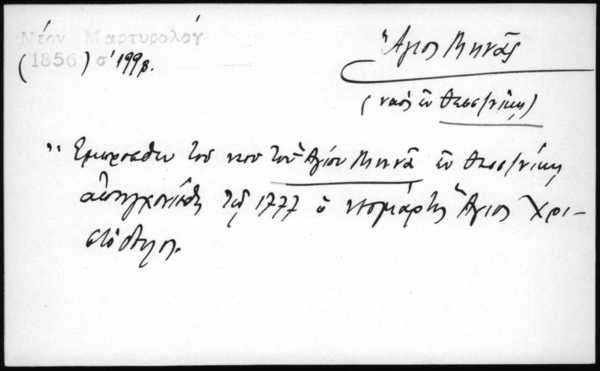 Νέον Μαρτυρολόγ
(1856) σ' 199β.
Ἅγιος Μηνᾶς
(ναὸς ἐν Θεσσ/νίκῃ)
"Ἔμπροσθεν τοῦ ναοῦ τοῦ Ἁγίου Μηνᾶ ἐν Θεσσ/νίκῃ
ἀπηγχονίσθη τῷ 1777 ὁ νεομάρτης Ἅγιος Χρι-
στόδουλος.